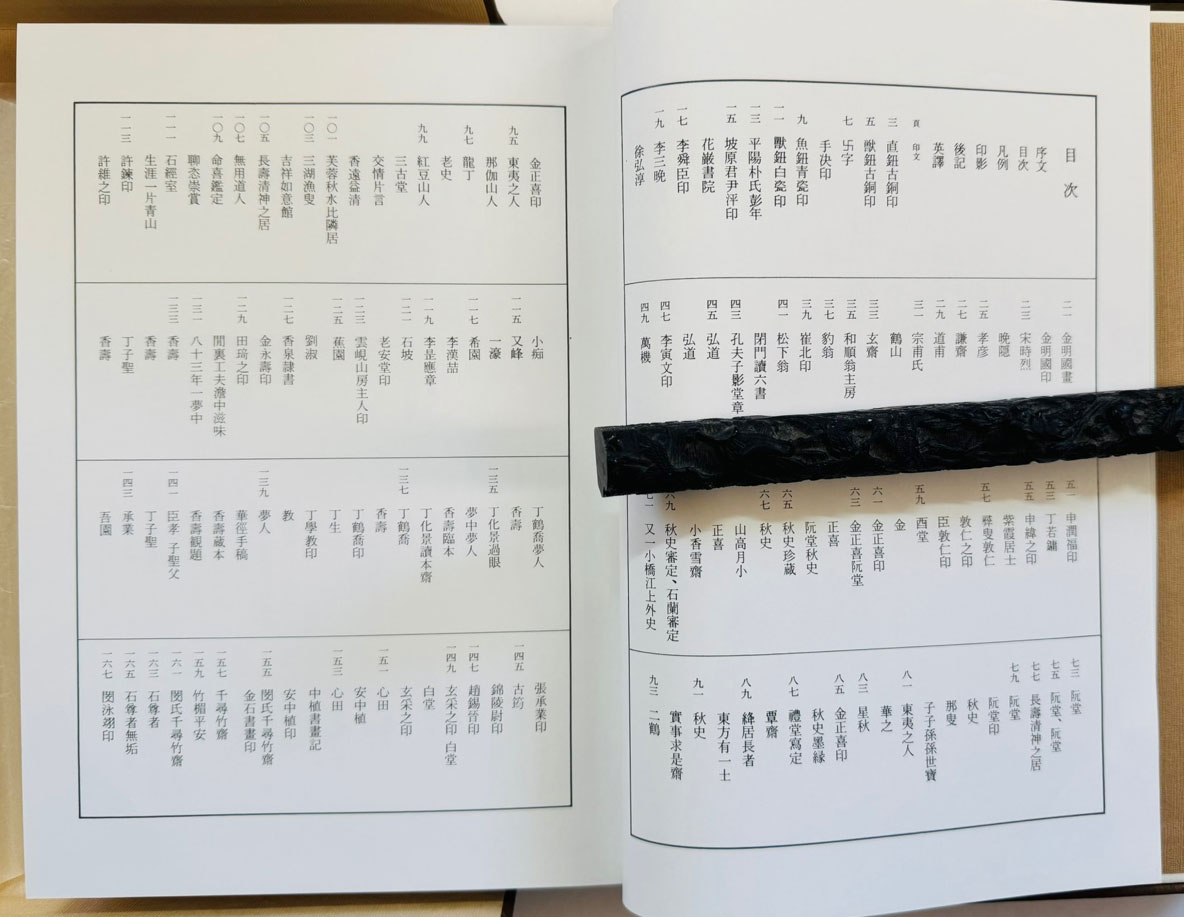 目次
序文
目次
凡例
印影
後記
英譯
頁 印文
三 直鈕古銅印
五 獸鈕古銅印
七 卐字
手決印
九 魚鈕青瓷印
一一 獸鈕白瓷印
一三 平陽朴氏彭年
一五 坡原君尹泙印
花巖書院
一七 李舜臣印
一九 李三晚
徐弘淳
二一 金明國畫
金明國印
二三 宋時烈
晚隱
二五 孝彦
二七 謙齋
二九 道甫
三一 宗甫氏
鶴山
三三 玄齋
三五 和順翁主房
三七 豹翁
三九 崔北印
四一 松下翁
閉門讀六書
四三 孔夫子影堂章
四五 弘道
弘道
四七 李寅文印
四九 萬機
五一 申潤福印
五三 丁若鏞
五五 申緯之印
紫霞居士
五七 彛叟敦仁
敦仁之印
臣敦仁印
五九 酉堂
金
六一 金正喜印
六三 金正喜阮堂
正喜
阮堂秋史
六五 秋史珍蔵
六七 秋史
山高月小
正喜
小香雪齋
六九 秋史審定、石蘭審定
七一 又一小橋江上外史
七三 阮堂
七五 阮堂、阮堂
七七 長壽清神之居
七九 阮堂
阮堂印
秋史
那叟
子子孫孫世寶
八一 東夷之人
華之
八三 星秋
八五 金正喜印
秋史墨縁
八七 禮堂寫定
覃齋
八九 絳居長者
東方有一士
九一 秋史
實事求是齋
九三 二鶴
金正喜印
九五 東夷之人
那伽山人
九七 龍丁
老史
九九 紅豆山人
三古堂
交情片言
香遠益清
一〇一 芙蓉秋水比隣居
一〇三 三湖漁叟
吉祥如意館
一〇五 長壽清神之居
一〇七 無用道人
一〇九 命喜鑑定
聊恣崇賞
一一一 石經室
生涯一片青山
一一三 許鍊印
許維之印
小痴
一一五 又峰
一濠
一一七 希園
李漢喆
一一九 李昰應章
一二一 石坡
老安堂印
一二三 雲峴山房主人印
一二五 蕉園
劉淑
一二七 香泉隷書
金永壽印
一二九 田琦之印
閒裏工夫澹中滋味
一三一 八十三年一夢中
一三三 香壽
香壽
丁子聖
香壽
丁鶴喬夢人
香壽
一三五 丁化景過眼
夢中夢人
香壽臨本
丁化景讀本齋
一三七 丁鶴喬
香壽
丁鶴喬印
丁生
丁學教印
教
一三九 夢人
華徑手稿
香壽蔵本
香壽観題
一四一 臣孝 子聖父
丁子聖
一四三 承業
吾園
張承業印
一四五 古筠
錦陵尉印
一四七 趙錫晉印
一四九 玄采之印 白堂
白堂
玄采之印
一五一 心田
安中植
一五三 心田
中植書畫記
安中植印
一五五 閔氏千尋竹齋
金石書畫印
一五七 千尋竹齋
一五九 竹楣平安
一六一 閔氏千尋竹齋
一六三 石尊者
一六五 石尊者無垢
一六七 閔泳翊印